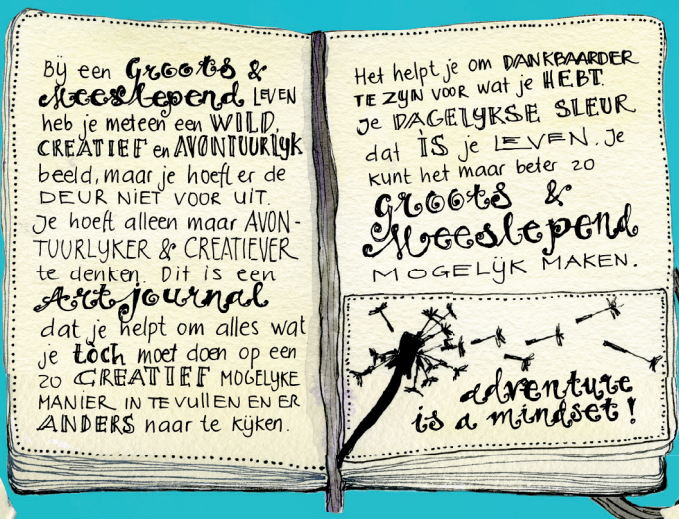 Bij een Groots &
Meeslepend LEVEN
heb je meteen een WILD,
CREATIEF en AVONTUURLIJK
beeld, maar je hoeft er de
DEUR NIET VOOR UIT.
Je hoeft alleen maar AVON-
TUURLIJKER & CREATIEVER
te denken. Dit is een
Art journal
dat je helpt om alles wat
je tòch moet doen op een
zo CREATIEF MOGELIJKE
MANIER IN TE VULLEN EN ER
ANDERS naar te kijken.
Het helpt je om DANKBAARDER
TE ZIJN VOOR wat je HEBT.
Je DAGELIJKSE SLEUR
dat ÌS je LEVEN. Je
kunt het maar beter zo
Groots &
Meeslepend
MOGELIJK MAKEN.
adventure
is a mindset!